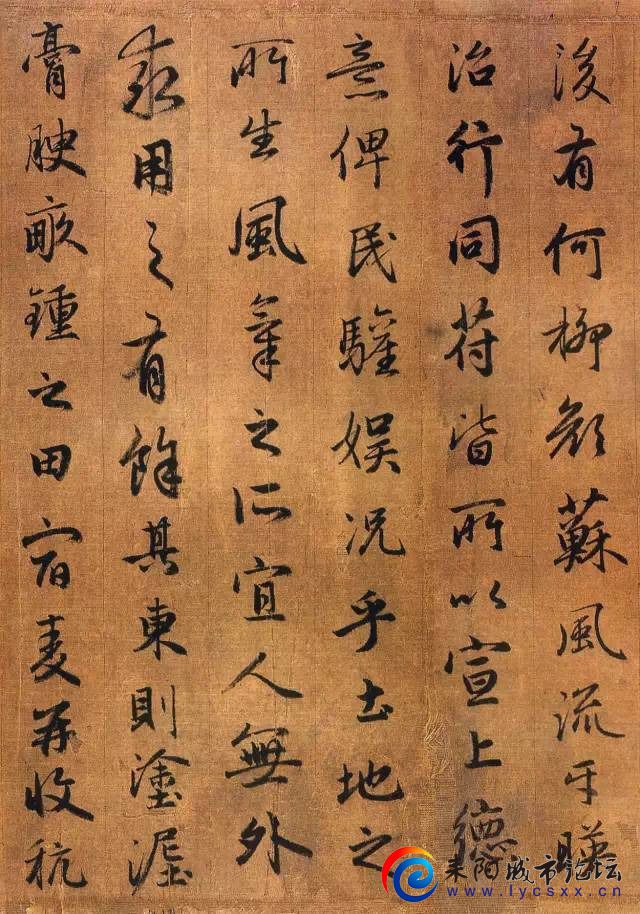 後有何柳顔蘇風流互暎
治行同苻皆所以宣上德
意俾民驩娱况乎土地之
所生風氣之所宜人無外
求用之有餘其東則塗泥
膏腴畝鍾之田宿麦再收秔
耒阳城市论坛
www.lycsxx.cn